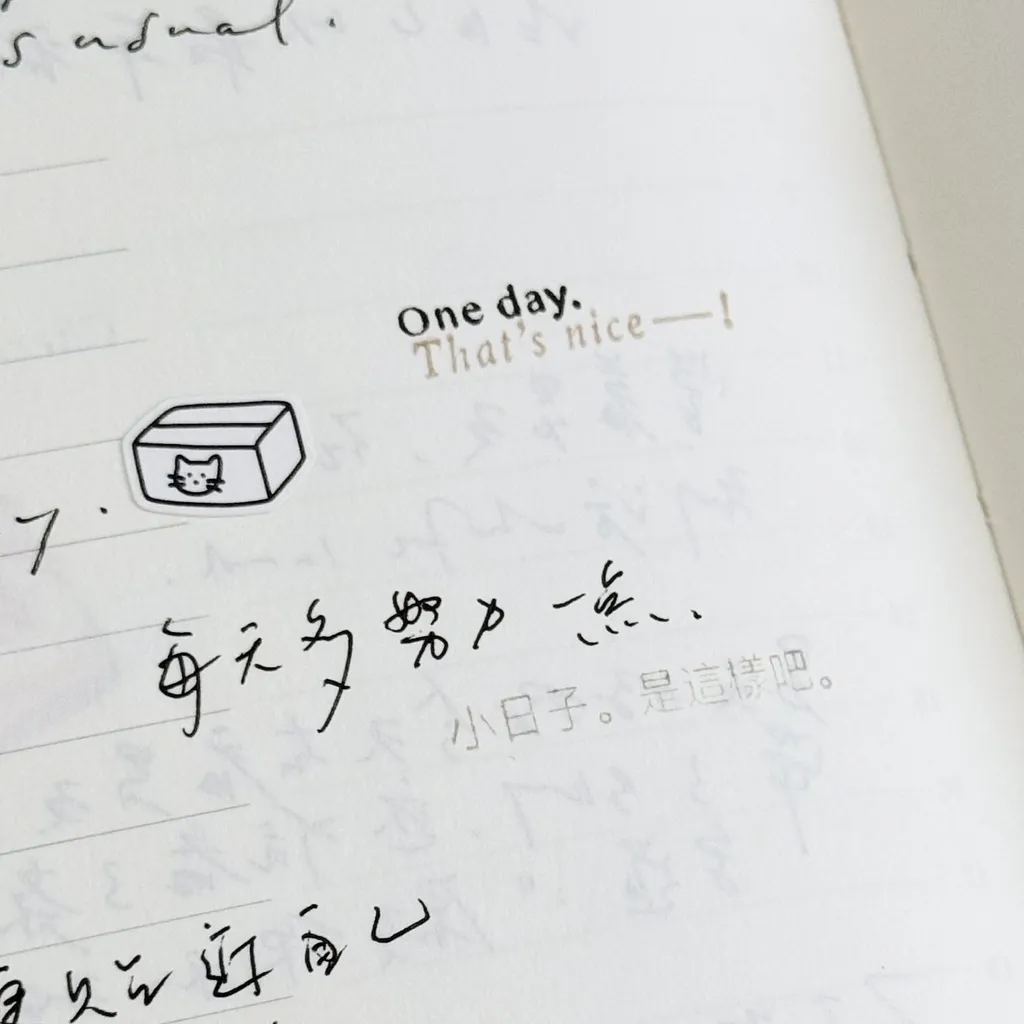 s usual.
One day.
That's nice—!
7.
每天多努力一点.
小日子。是這樣吧。
自己